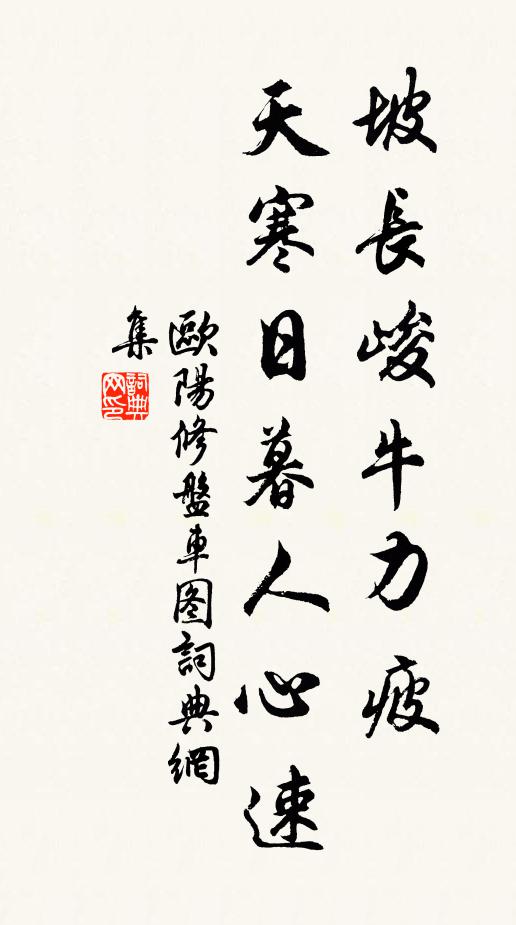 坡長峻牛力疲
天寒日暮人心速
歐陽修盤車图詞典網
集
詞典
网印